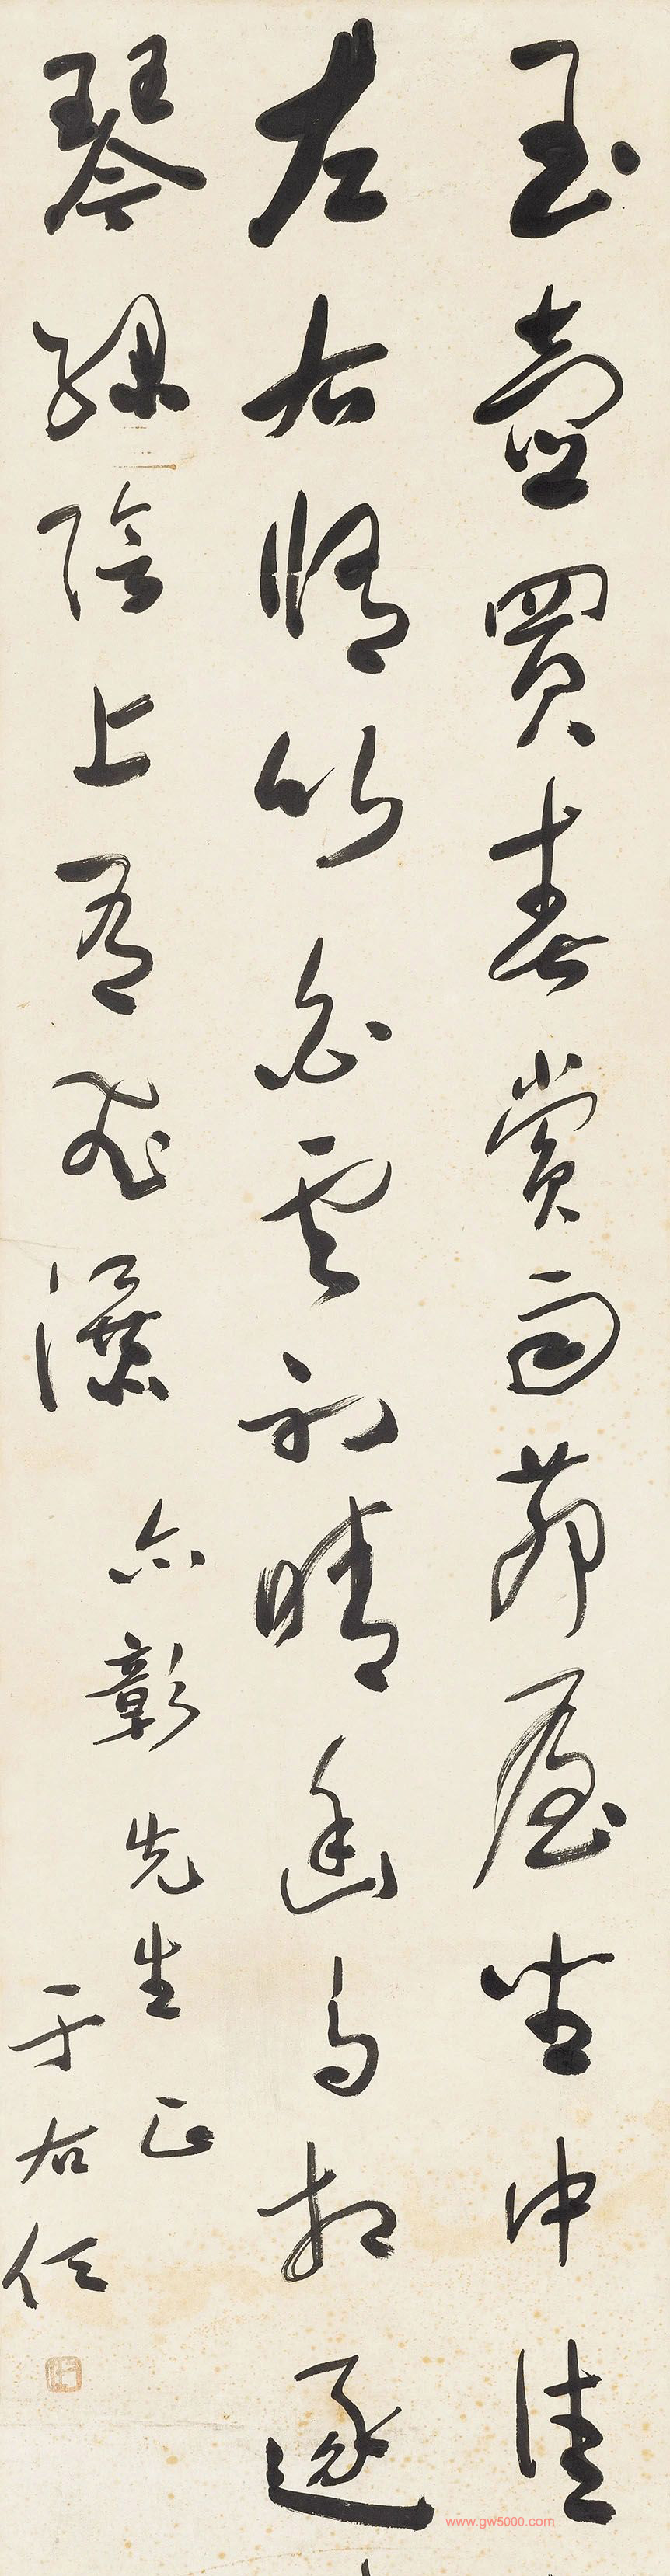 玉壺買春賞雨茅屋坐中佳
左右脩竹白雲初晴幽鳥相逐
琴綠陰上有飛瀑
亦彰先生正
于右任
www.gw5000.com